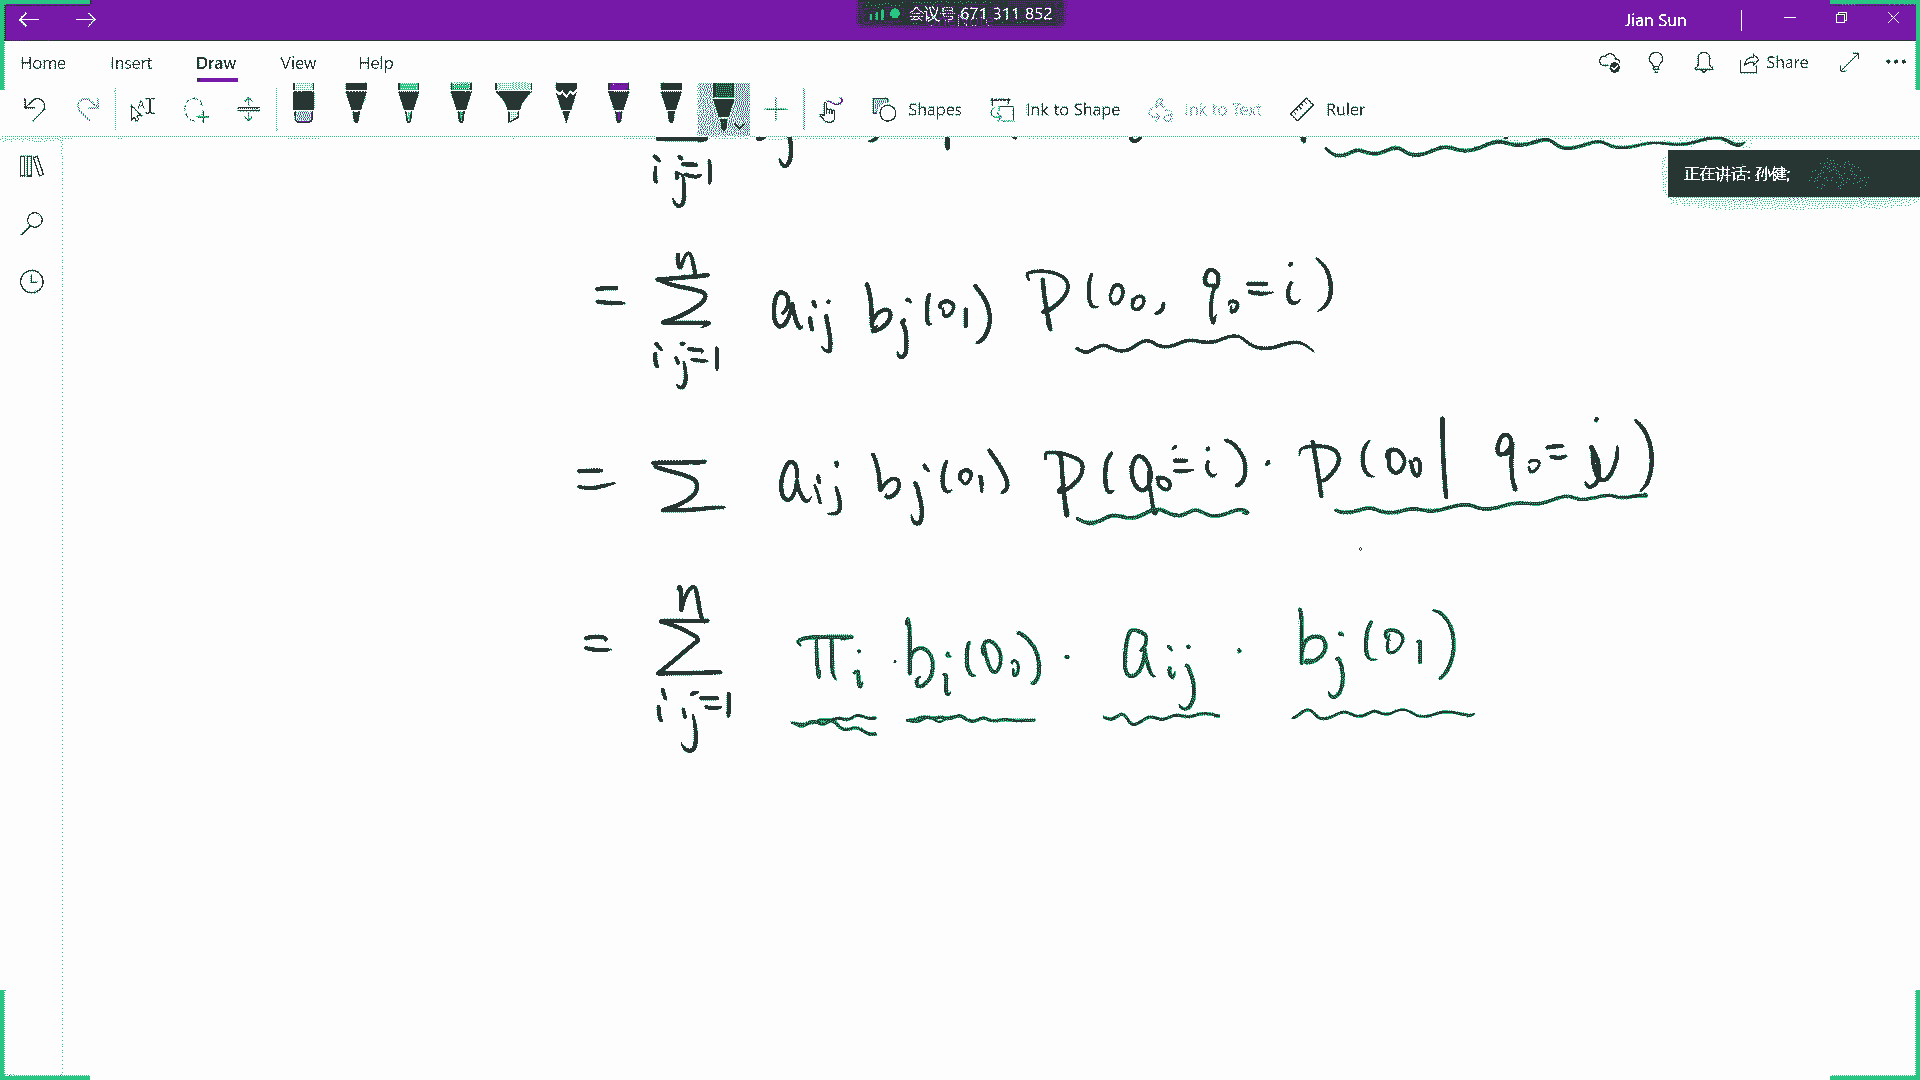 会议号 671 311 852
Jian Sun
Home Insert Draw View Help
Share
Shapes Ink to Shape Ink to Text Ruler
正在讲话: 孙健;
i j=1
= Σ a_ij b_j(o_1) P(o_0, q_0=i)
n
i j=1
= Σ a_ij b_j(o_1) P(q_0=i) · P(o_0 | q_0=i)
n
= Σ π_i · b_i(o_0) · a_ij · b_j(o_1)
i j=1